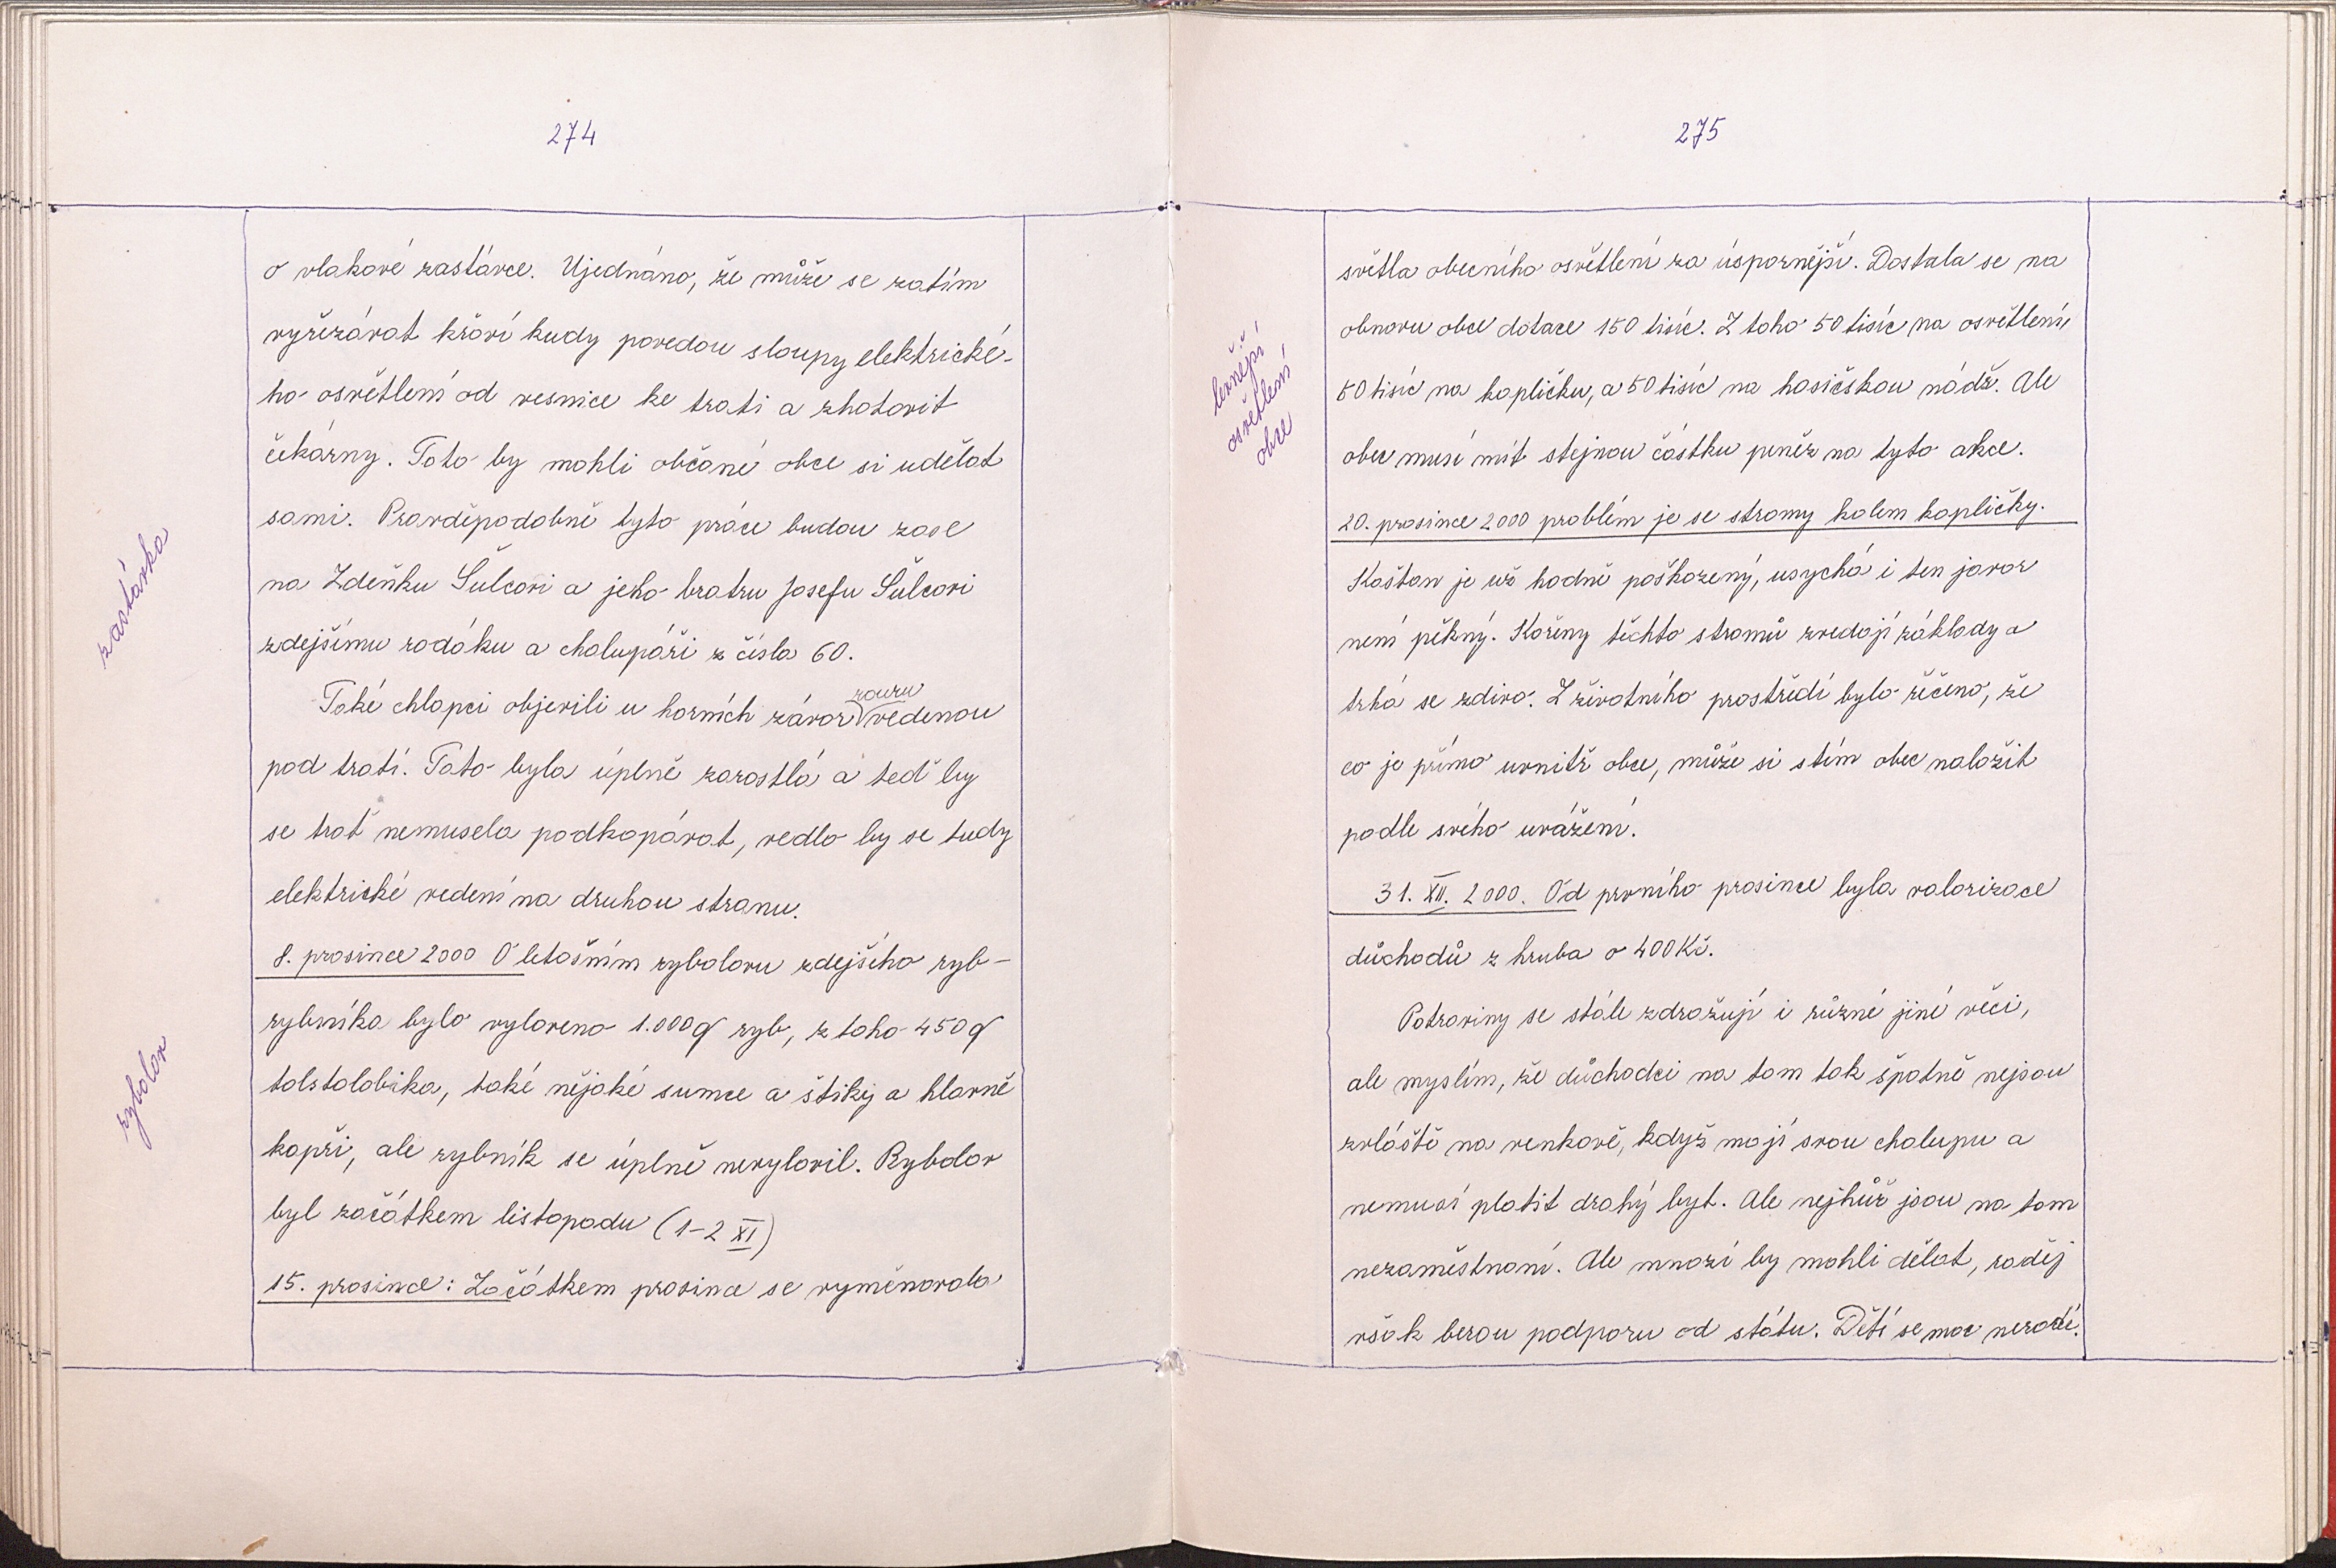 274
zastávka
rybolov
o vlakové zastávce. Ujednáno, že může se zatím
vyřezávat křoví kudy povedou sloupy elektrické-
ho osvětlení od vesnice ke trati a zhotovit
čekárny. Toto by mohli občané obce si udělat
sami. Pravděpodobně tyto práce budou zase
na Zdeňku Šulcovi a jeho bratru Josefu Šulcovi
zdejšímu rodáku a chalupáři z čísla 60.
Také chlapci objevili u horních závor rouru vedenou
pod tratí. Tato byla úplně zarostlá a teď by
se trať nemusela podkopávat, vedlo by se tudy
elektrické vedení na druhou stranu.
8. prosince 2000 O letošním rybolovu zdejšího ryb-
rybníka bylo vyloveno 1.000 q ryb, z toho 450 q
tolstolobika, také nějaké sumce a štiky a hlavně
kapři, ale rybník se úplně nevylovil. Rybolov
byl začátkem listopadu (1-2 XI)
15. prosince: Začátkem prosince se vyměnovala
275
levnější
osvětlení
obce
světla obecního osvětlení za úspornější. Dostala se na
obnovu obce dotace 150 tisíc. Z toho 50 tisíc na osvětlení,
50 tisíc na kapličku, a 50 tisíc na hasičskou nádž. Ale
obec musí mít stejnou částku peněz na tyto akce.
20. prosince 2000 problém je se stromy kolem kapličky.
Kaštan je už hodně poškozený, usychá i ten javor
není pěkný. Kořeny těchto stromů zvedají základy a
trhá se zdivo. Z životního prostředí bylo řečeno, že
co je přímo uvnitř obce, může si stím obec naložit
podle svého uvážení.
31. XII. 2000. Od prvního prosince byla valorizace
důchodů z hruba o 400 Kč.
Potraviny se stále zdražují i různé jiné věci,
ale myslím, že důchodci na tom tak špatně nejsou
zvláště na venkově, když mají svou chalupu a
nemusí platit drahý byt. Ale nejhůř jsou na tom
nezaměstnaní. Ale mnozí by mohli dělat, raděj
však berou podporu od státu. Dětí se moc nerodí.